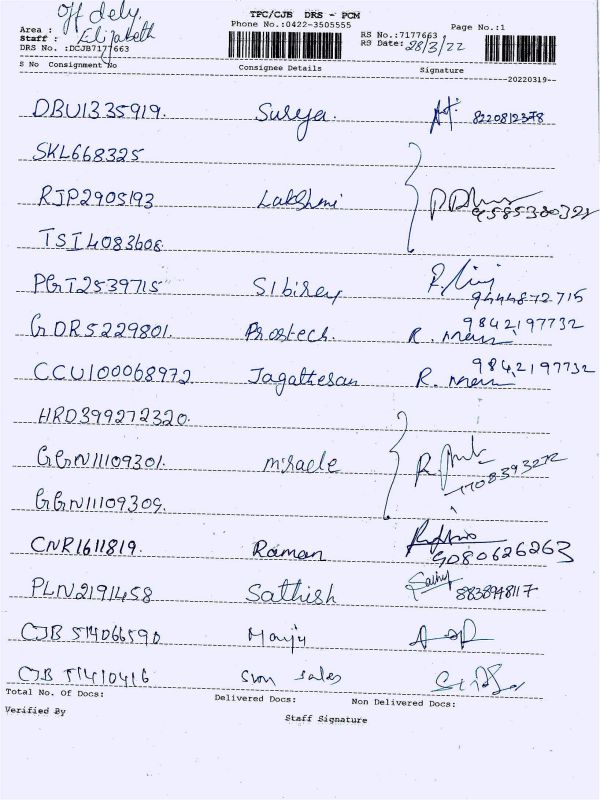 TPC/CJB DRS - PCM
Off dely.
Area :
Phone No.:0422-3505555
Page No.:1
Staff : Elizabeth
RS No.:7177663
DRS No. :DCJB7177663
RS Date: 28/3/22
S No Consignment No Consignee Details Signature
20220319
DBU1335919. Surya. 8220812378
SKL668325
RJP2905193 Lakshmi 9585380321
TSI4083608
PGI2539715 Sibirey 9444872715
GDR5229801. Prostech. 9842197732
CCU100068972 Jagathesan 9842197732
HRD399272320.
GGN11109301. miracle 7708393272
GGN11109309.
CNR1611819. Raman 9080626263
PLN2191458 Sathish 8838948117
CJB 514066590 Manju
CJB 51410416 sun sales
Total No. Of Docs: Delivered Docs: Non Delivered Docs:
Verified By
Staff Signature